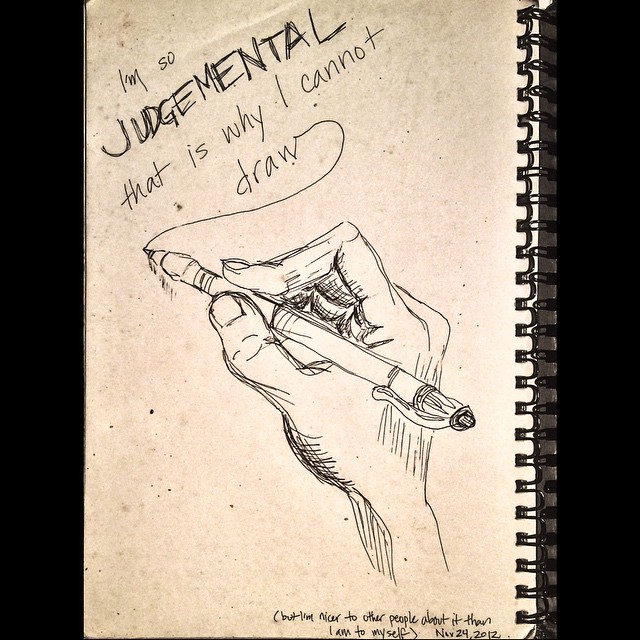 I'm so
JUDGEMENTAL
that is why I cannot
draw
(but I'm nicer to other people about it than
I am to myself) Nov 24, 2012.